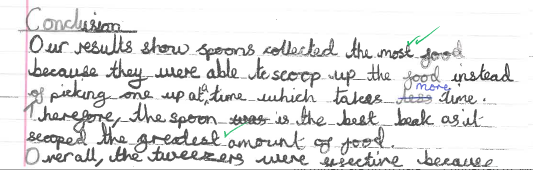 Conclusion
Our results show spoons collected the most food
because they were able to scoop up the food instead
of picking one up at a time which takes more time.
Therefore, the spoon is the best beak as it
scoped the greatest amount of food.
Overall, the tweezers were effective because